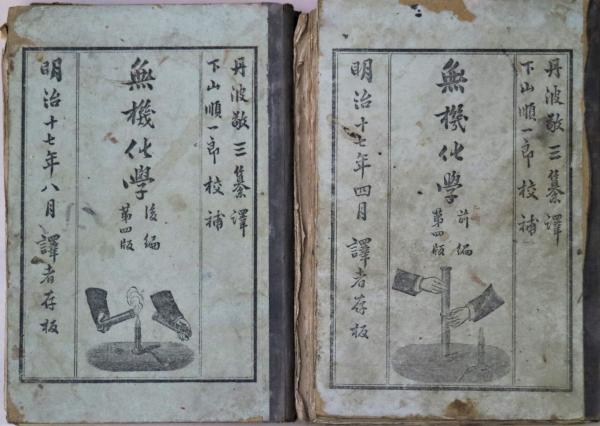 丹波敬三纂譯
下山順一郎校補
無機化學
前編
第四版
明治十七年四月 譯者存板
丹波敬三纂譯
下山順一郎校補
無機化學
後編
第四版
明治十七年八月 譯者存板